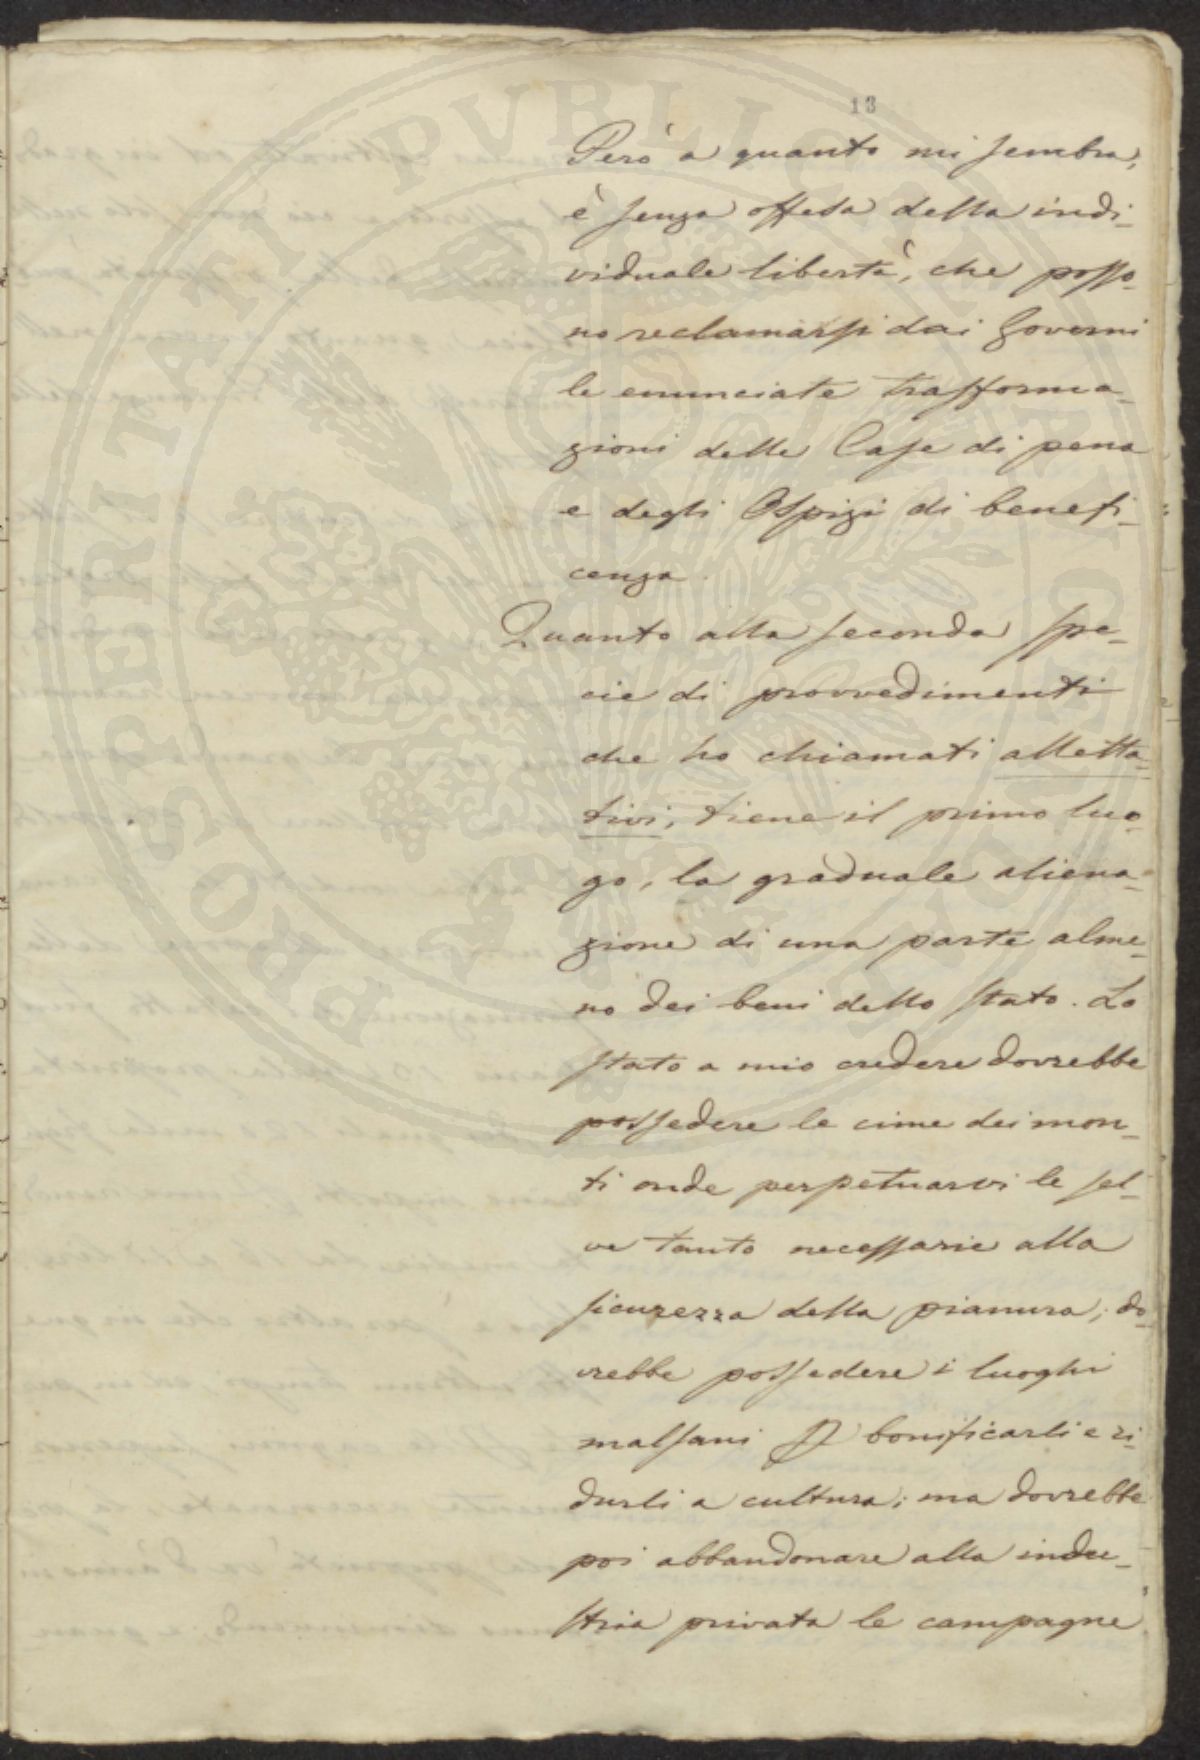 13
Però a quanto mi sembra,
è senza offesa della indi-
viduale libertà, che posso-
no reclamarsi dai Governi
le enunciate trasforma-
zioni delle Case di pena
e degli Ospizi di benefi-
cenza.
Quanto alla seconda spe-
cie di provvedimenti
che ho chiamati alletta-
tivi, tiene il primo luo-
go, la graduale aliena-
zione di una parte alme-
no dei beni dello Stato. Lo
Stato a mio credere dovrebbe
possedere le cime dei mon-
ti onde perpetuarvi le sel-
ve tanto necessarie alla
sicurezza della pianura; do-
vrebbe possedere i luoghi
malsani P bonificarli e ri-
durli a cultura; ma dovrebbe
poi abbandonare alla indu-
stria privata le campagne
PROSPERITATI PVBLICAE